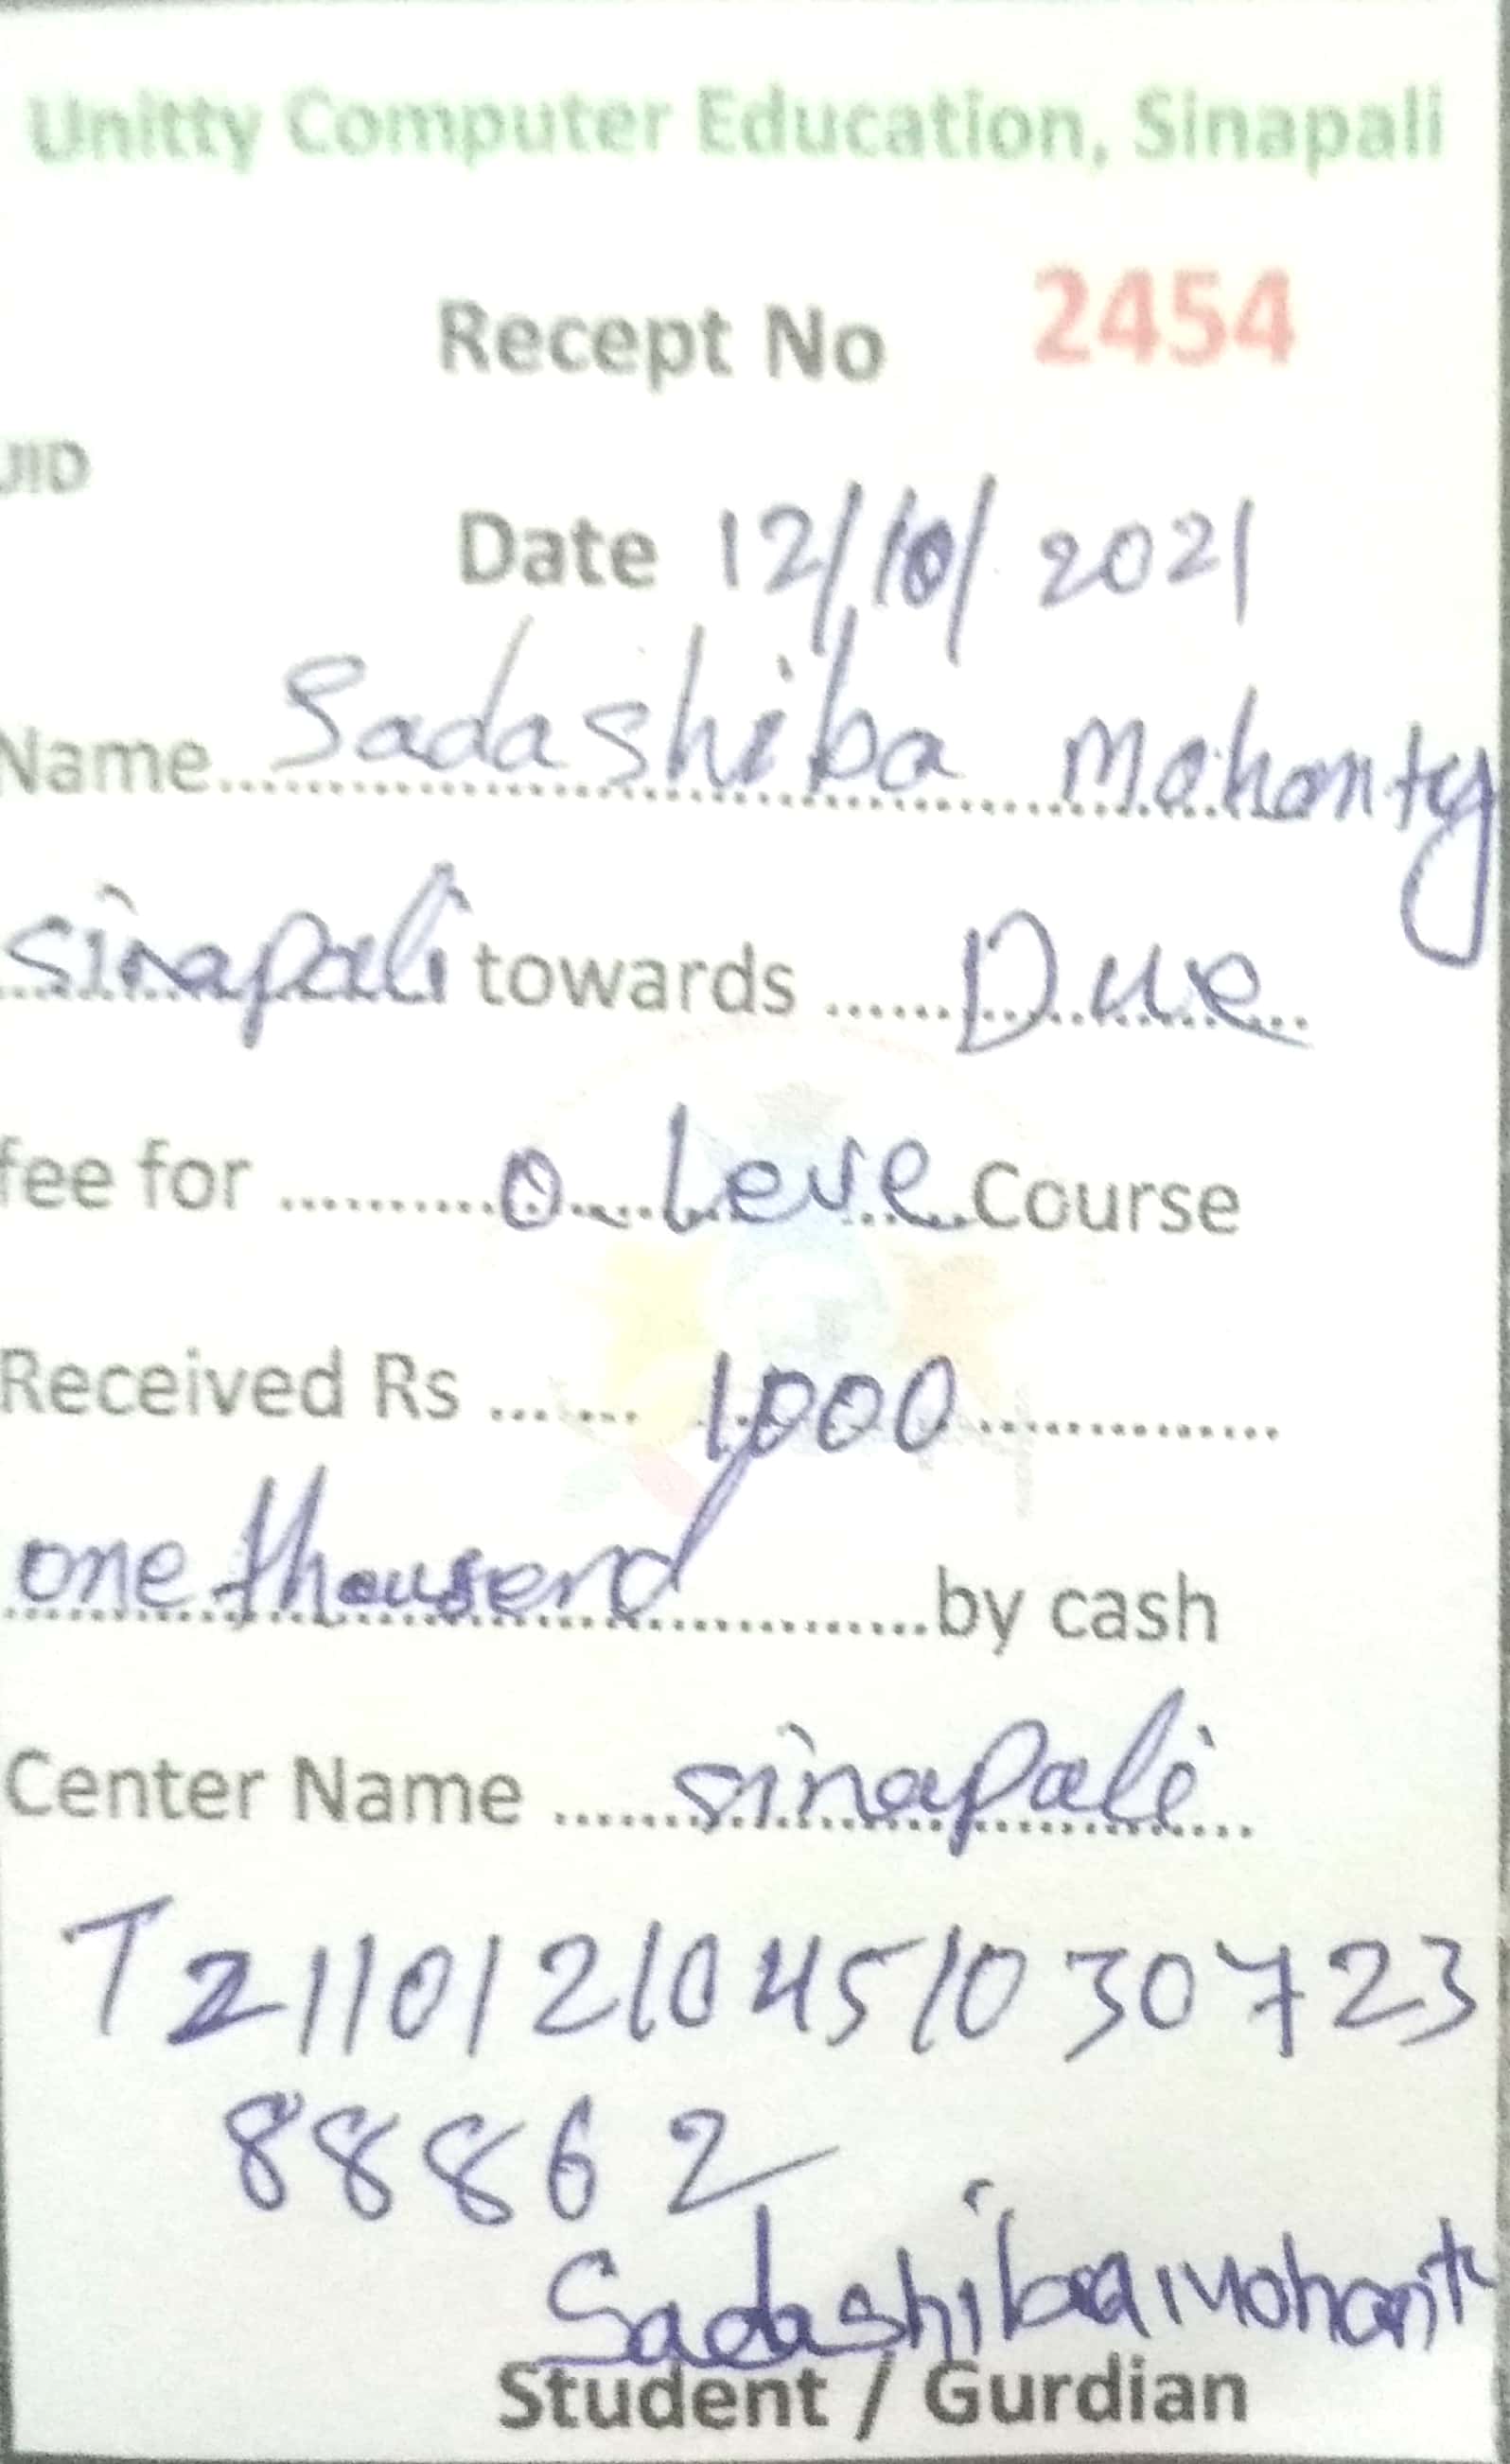 Unitty Computer Education, Sinapali
Recept No 2454
UID
Date 12/10/2021
Name........Sadashiba Mohanty
sinapali towards ......Due
fee for ..........O-Leve Course
Received Rs ....... 1000..............
one thousend..............by cash
Center Name .......sinapali
T2110121045103072​3
88862
Sadashiba Mohant
Student / Gurdian